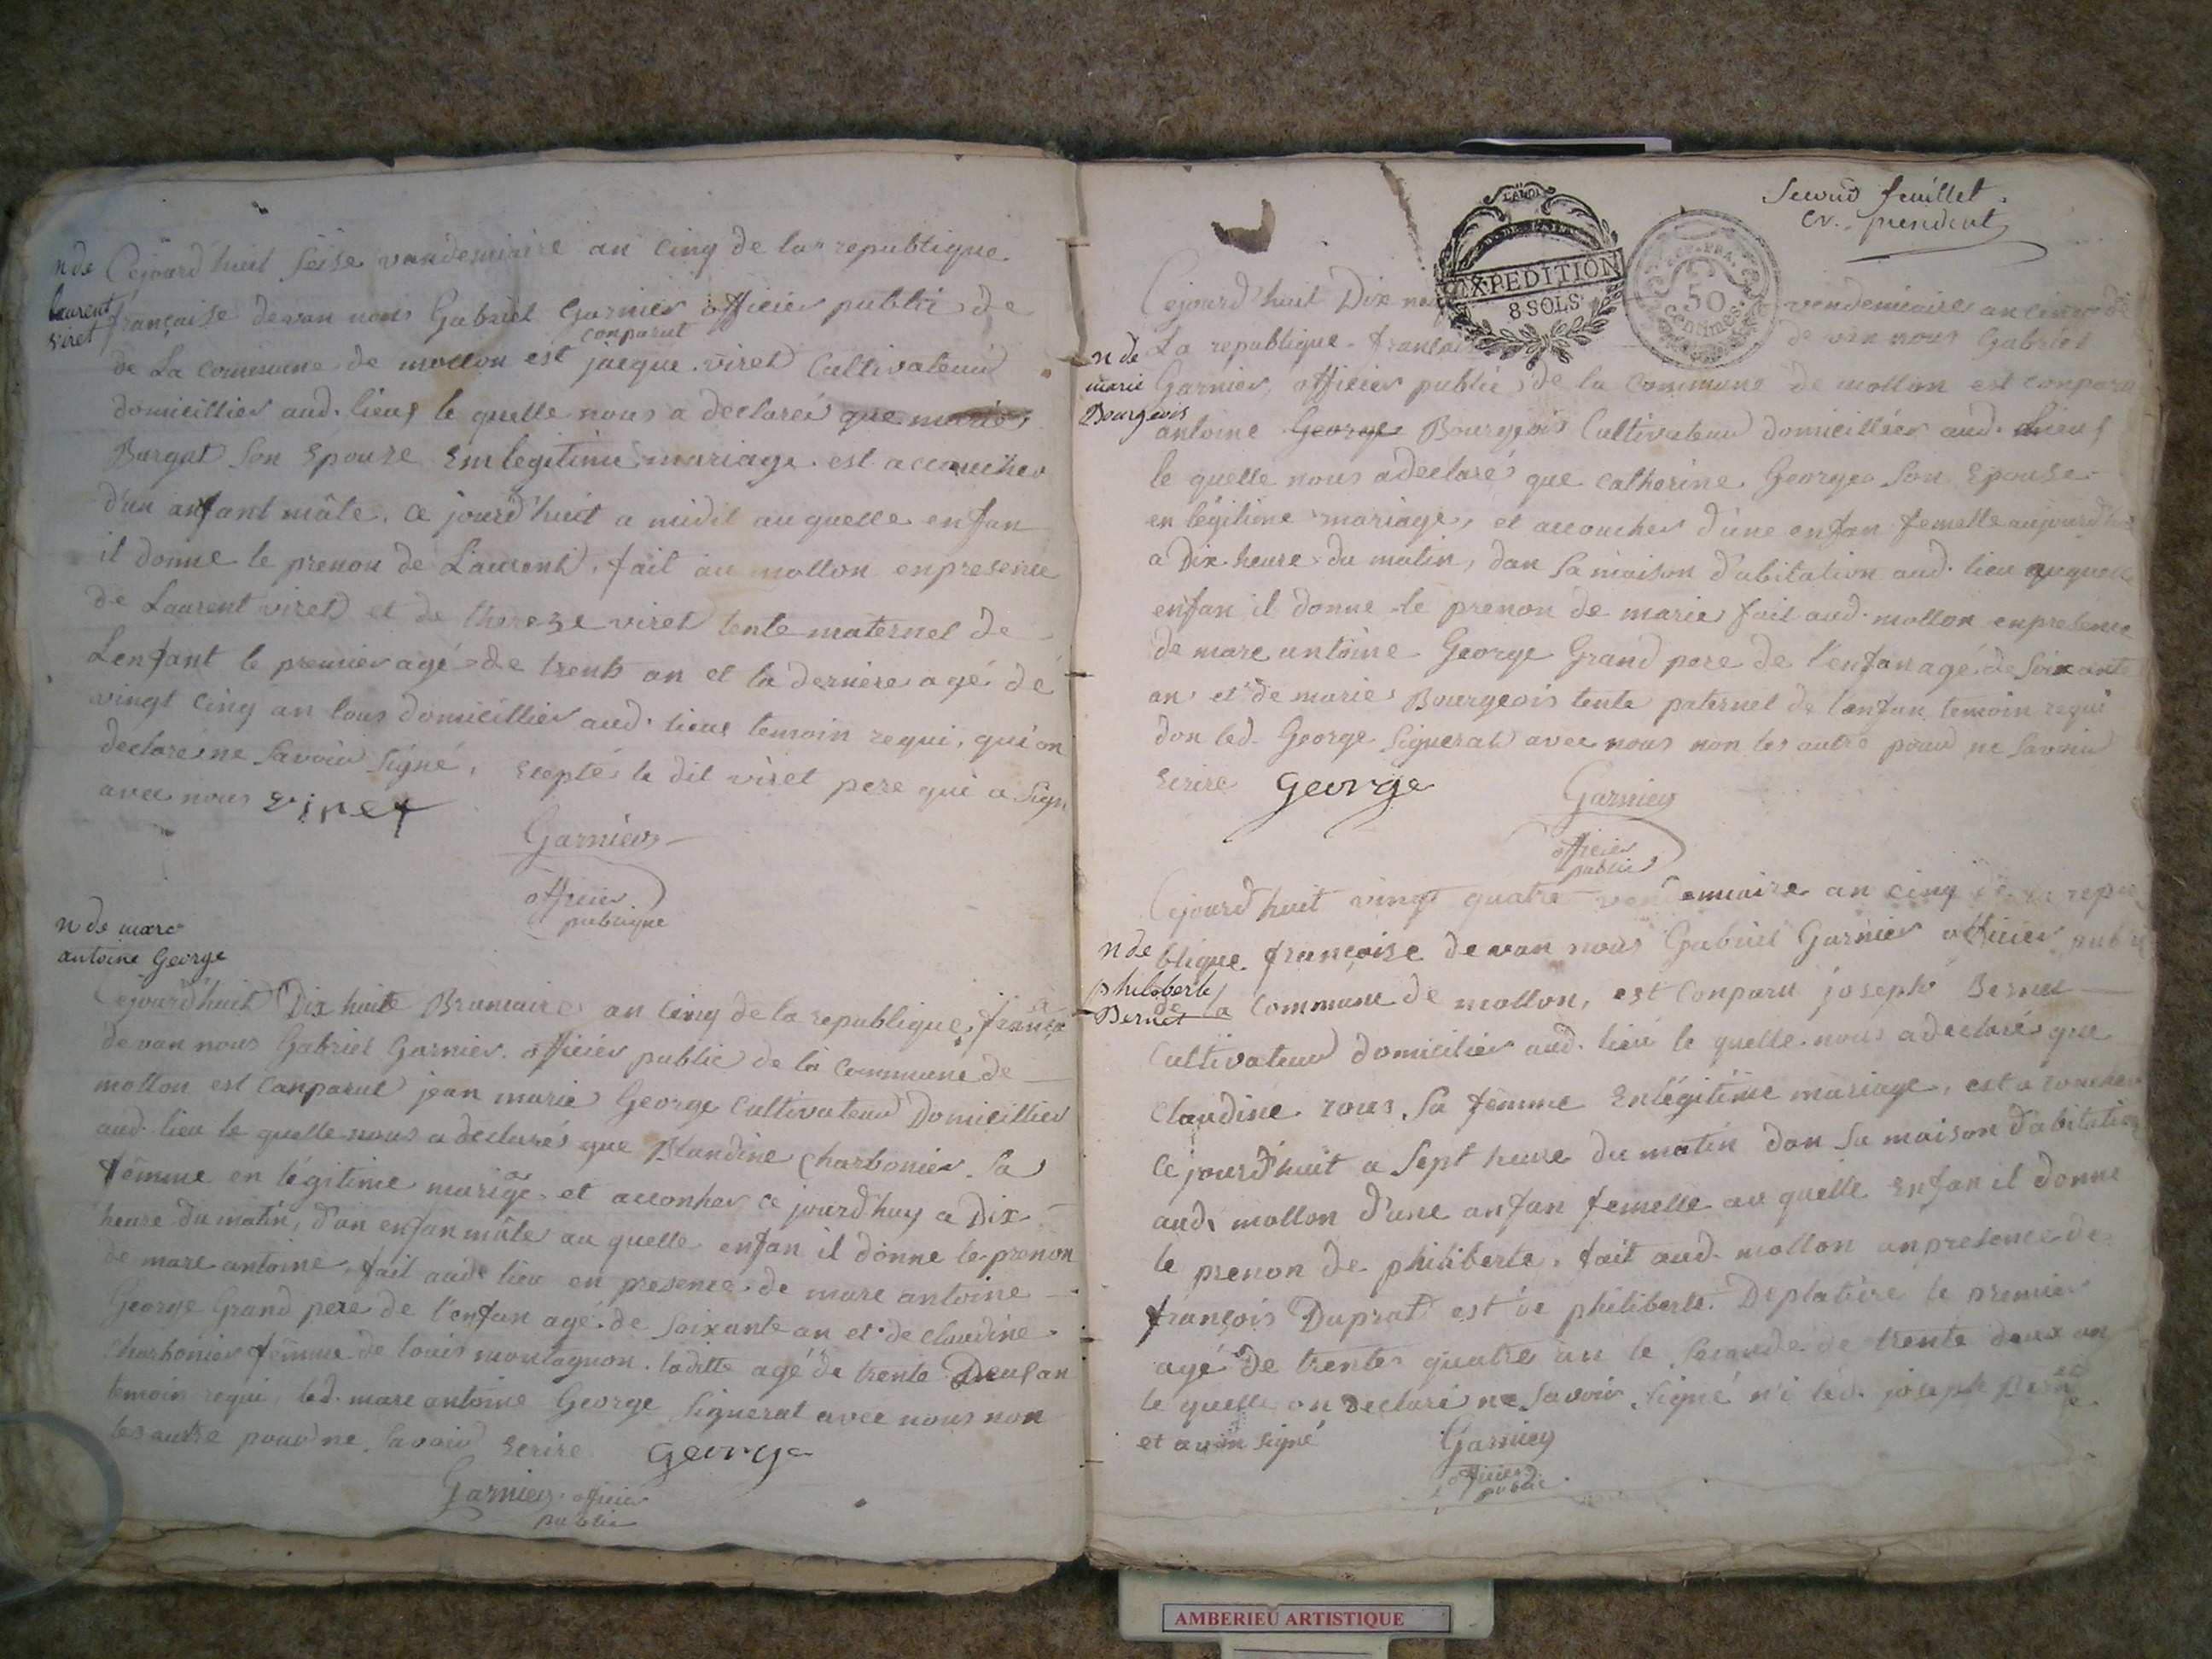 n de
laurent
viret
Cejourd'huit séise vandemiaire an cinq de la republique
française devan nous Gabriel Garnier officier public de
conparut
de La commune de mollon est jacque viret Cultivateur
domicillier aud. lieuf le quelle nous a declareé que marie
Burgat son Epouze En legitime mariage est accoucher
d'un anfant mâle, ce jourd'huit a midit au quelle enfan
il donne le prenon de Laurent, fait au mollon enpresence
de Laurent viret et dethereze viret tente maternel de
Lenfant le premier agé de trente an et la derniere agé dé
vingt cinq an tous domicillier aud. lieuf temoin requi, qui on
declaré ne savoir signé, Eceptés le dit viret pere qui a sign
avec nous viret
Garnier
officier
publique
n de marc
antoine George
Cejourd'huit Dix huite Brumaire an cinq de la republique frança
devan nous Gabriel Garnier officier public de la Commune de
mollon est Conparut jean marie George Cultivateur Domicillier
aud. lieu le quelle nous a declarés que Claudine Charbonier sa
femme en légitime marige et acconher ce jourd'huy a Dix
heure du matin, d'un enfan mâle au quelle enfan il donne le prenon
de marc antoine, fait aud. lieu en presence de marc antoine
George Grand pere de l'enfan agé de soixante an et de claudine
Charbonier femme de louis montagnon laditte agé de trente Deuf an
temoin requi, led. marc antoine George signerat avec nous non
les autre pour ne savoir Ecrire George
Garnier officier
public
second feuillet
président
EXPEDITION
8 SOLS
50
Centimes
n de
marie
Bourgeois
Cejourd'huit Dix vendemiaire an cinq de
La republique francai devan nous Gabriel
Garnier, officier public de la Commune de mollon est conparu
antoine George Bourgeois Cultivateur domicillier aud. Lieuf
le quelle nous a declaré que catherine George son Epouse
en légitime mariage, et accoucher d'une enfan femelle aujourd'hui
a Dix heure du matin, dan sa maison d'abitation aud. lieu auquelle
enfan il donne le prenon de marie fait aud. mollon enpresence
de marc antoine George Grand pere de l'enfan agé de soixante
an et de marie Bourgeois tente paternel de l'enfan temoin requi
don led. George signerat avec nous non les autre pour ne savoir
Ecrire George
Garnier
officier
public
n de
philiberte
Bernet
Cejourd'huit vingt quatre vendemiaire an cinq de la repu
blique françoise devan nous Gabriel Garnier officier public
de la Commune de mollon, est Conparu joseph Bernet
Cultivateur domicilier aud. lieu le quelle nous a declarés que
Claudine rous sa femme En légitime mariage, est acoucher
Ce jourd'huit a sept heure du matin dan sa maison d'abitation
aud. mollon d'une anfan femelle au quelle enfan il donne
le prenon de philiberte, fait aud. mollon anpresence de
françois Duprat est de philiberte Deplatière le premier
agé de trente quatre an le seconde de trente deux an
le quelle on declaré ne savoir signé n'i led. joseph Bernet
et avon signé
Garnier
officier
public
AMBERIEU ARTISTIQUE